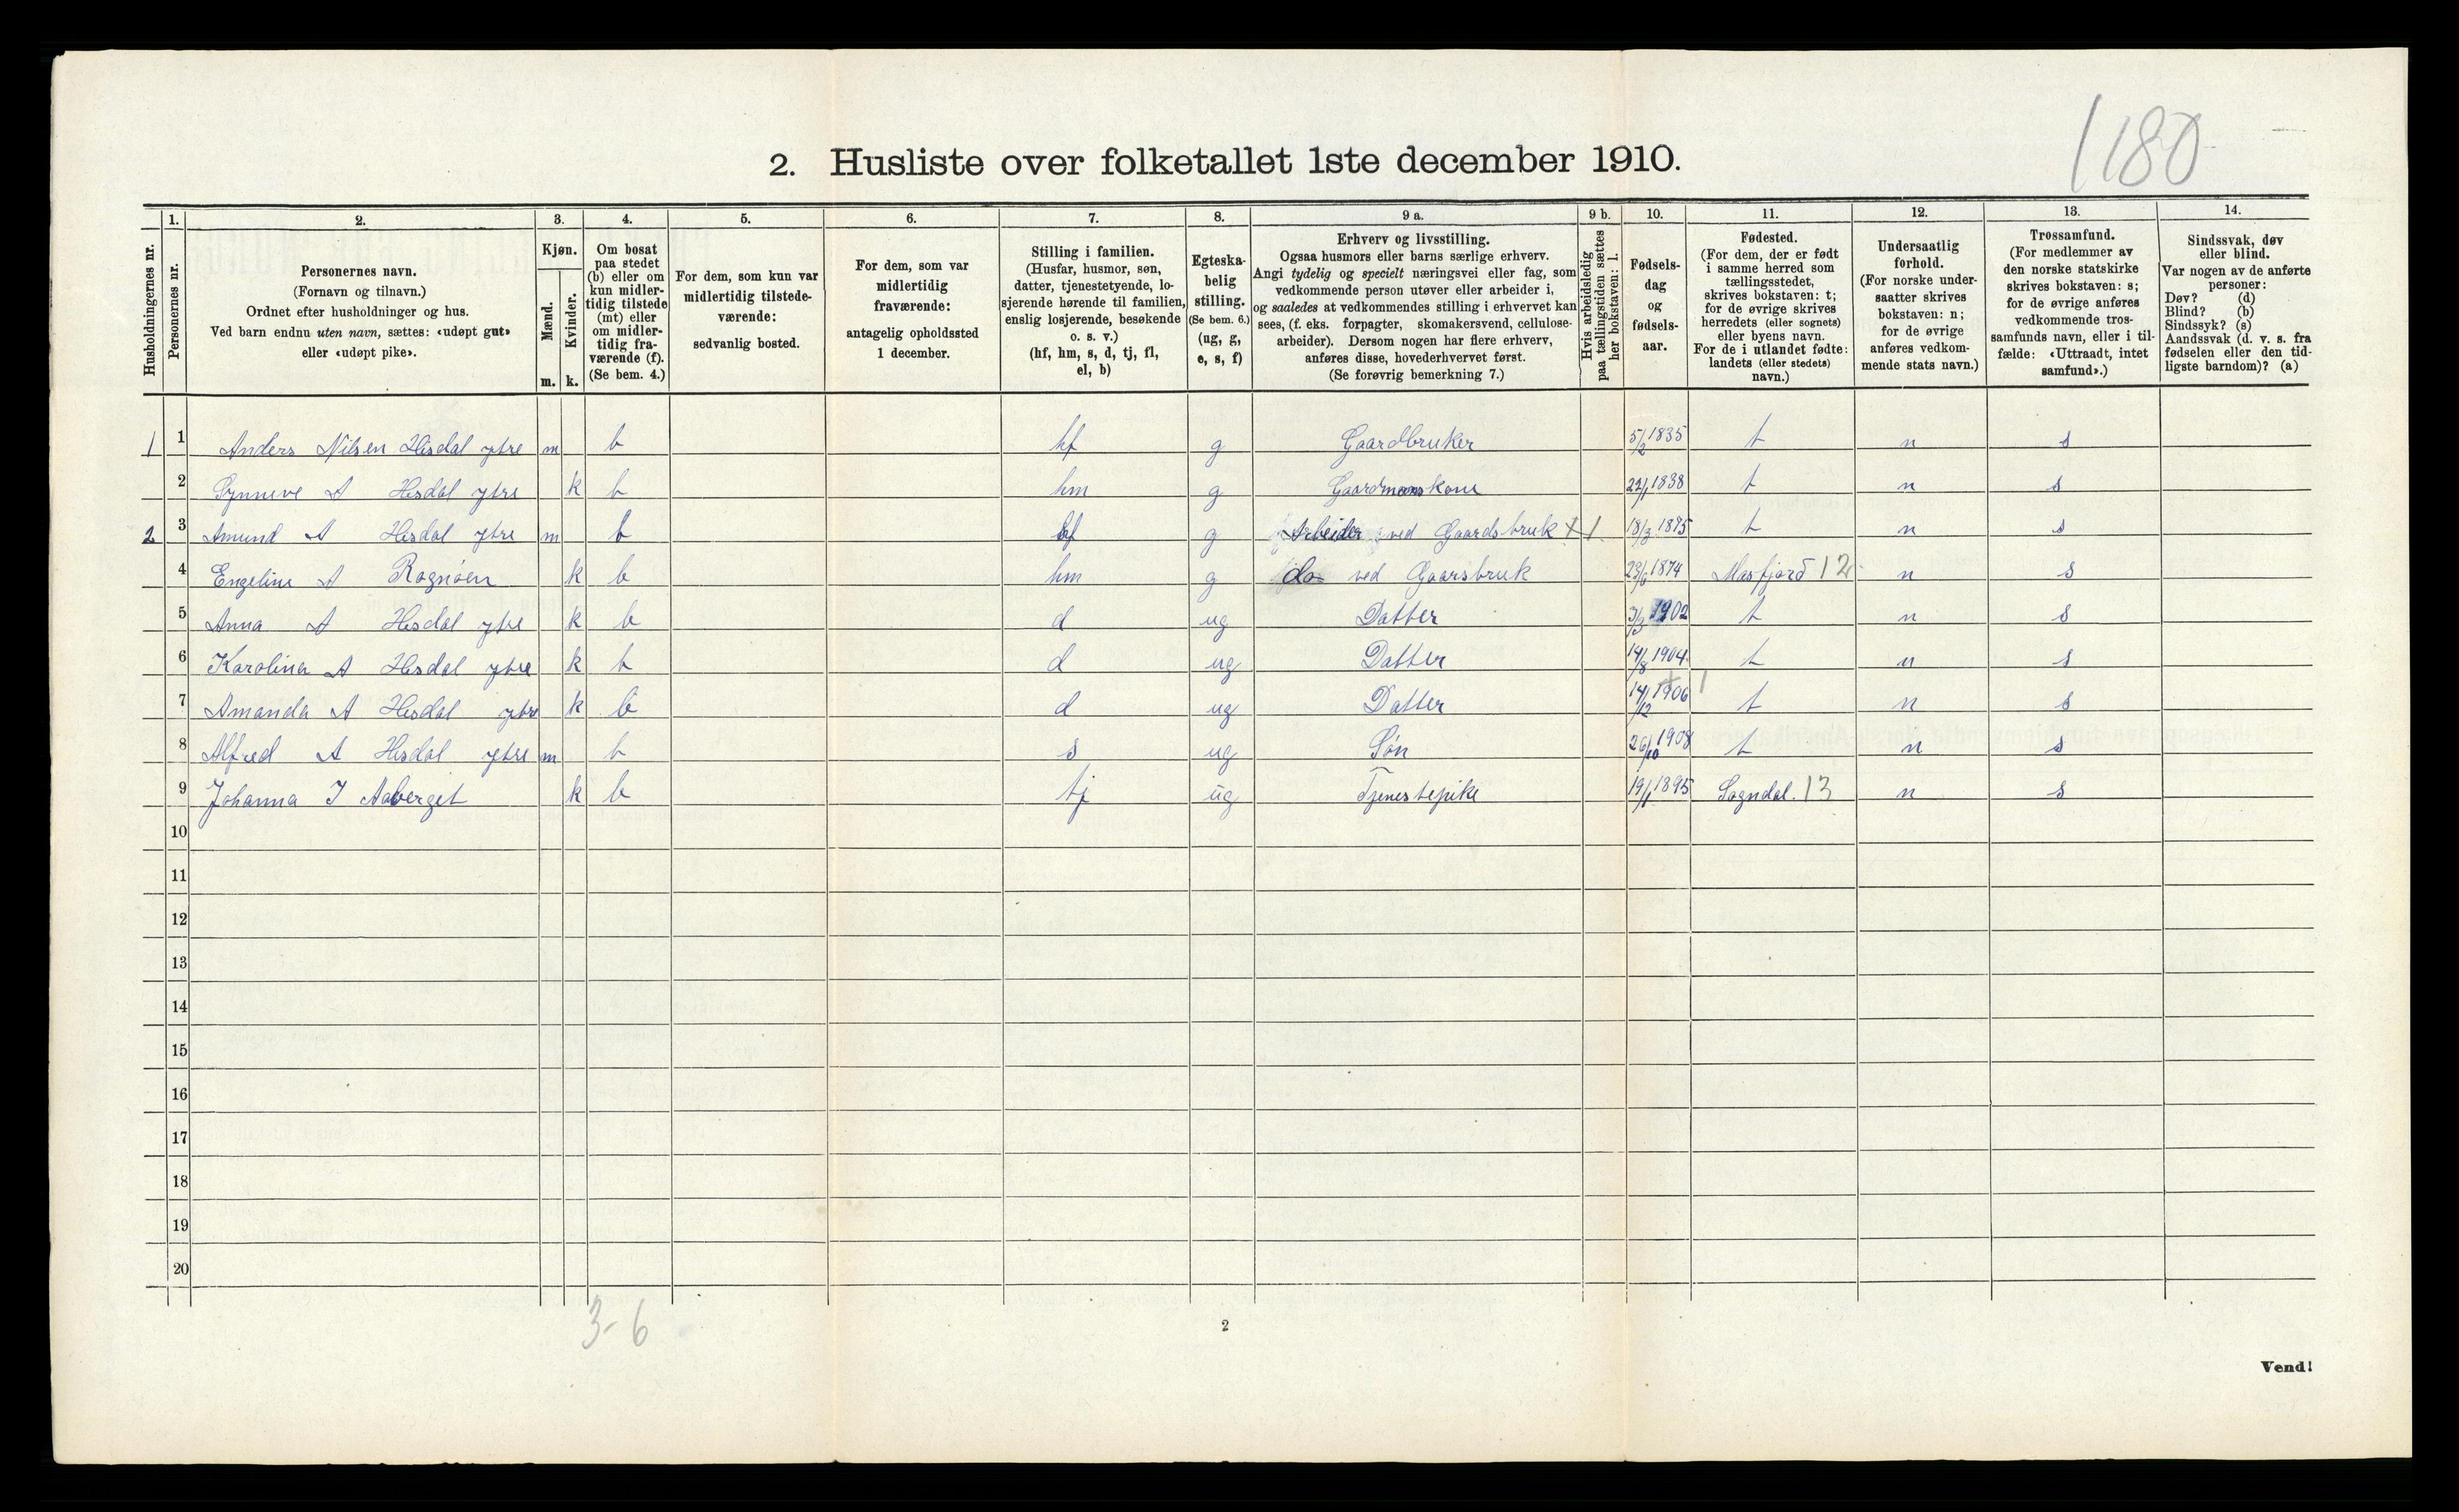 1180
2. Husliste over folketallet 1ste december 1910.
1. 2. 3. 4. 5. 6. 7. 8. 9 a. 9 b. 10. 11. 12. 13. 14.
Husholdningernes nr.
Personernes nr.
Personernes navn.
(Fornavn og tilnavn.)
Ordnet efter husholdninger og hus.
Ved barn endnu uten navn, sættes: «udøpt gut»
eller «udøpt pike».
Kjøn.
Mænd.
Kvinder.
m. k.
Om bosat
paa stedet
(b) eller om
kun midler-
tidig tilstede
(mt) eller
om midler-
tidig fra-
værende (f).
(Se bem. 4.)
For dem, som kun var
midlertidig tilstede-
værende:
sedvanlig bosted.
For dem, som var
midlertidig
fraværende:
antagelig opholdssted
1 december.
Stilling i familien.
(Husfar, husmor, søn,
datter, tjenestetyende, lo-
sjerende hørende til familien,
enslig losjerende, besøkende
o. s. v.)
(hf, hm, s, d, tj, fl,
el, b)
Egteska-
belig
stilling.
(Se bem. 6.)
(ug, g,
e, s, f)
Erhverv og livsstilling.
Ogsaa husmors eller barns særlige erhverv.
Angi tydelig og specielt næringsvei eller fag, som
vedkommende person utøver eller arbeider i,
og saaledes at vedkommendes stilling i erhvervet kan
sees, (f. eks. forpagter, skomakersvend, cellulose-
arbeider). Dersom nogen har flere erhverv,
anføres disse, hovederhvervet først.
(Se forøvrig bemerkning 7.)
Hvis arbeidsledig
paa tællingstiden sættes
her bokstaven: l.
Fødsels-
dag
og
fødsels-
aar.
Fødested.
(For dem, der er født
i samme herred som
tællingsstedet,
skrives bokstaven: t;
for de øvrige skrives
herredets (eller sognets)
eller byens navn.
For de i utlandet fødte:
landets (eller stedets)
navn.)
Undersaatlig
forhold.
(For norske under-
saatter skrives
bokstaven: n;
for de øvrige
anføres vedkom-
mende stats navn.)
Trossamfund.
(For medlemmer av
den norske statskirke
skrives bokstaven: s;
for de øvrige anføres
vedkommende tros-
samfunds navn, eller i til-
fælde: «Uttraadt, intet
samfund».)
Sindssvak, døv
eller blind.
Var nogen av de anførte
personer:
Døv? (d)
Blind? (b)
Sindssyk? (s)
Aandssvak (d. v. s. fra
fødselen eller den tid-
ligste barndom)? (a)
1 1 Anders Nilsen Hisdal ytre m b hf g Gaardbruker 5/2 1835 t n s
2 Synneve A Hisdal ytre k b hm g Gaardmanskone 22/1 1838 t n s
2 3 Amund A Hisdal ytre m b hf g Arbeider ved Gaardsbruk X 1 18/3 1875 t n s
4 Engeline A Rognøen k b hm g do ved Gaarsbruk 23/6 1874 Masfjord 12 n s
5 Anna A Hisdal ytre k b d ug Datter 3/3 1902 t n s
6 Karolina A Hisdal ytre k b d ug Datter 14/8 1904 t n s
7 Amanda A Hisdal ytre k b d ug Datter 14/12 1906 t n s
8 Alfred A Hisdal ytre m b s ug Søn 26/10 1908 t n s
9 Johanna I Aaberget k b tj ug Tjenestepike 19/1 1895 Sogndal. 13 n s
10
11
12
13
14
15
16
17
18
19
20
3-6
2
Vend!